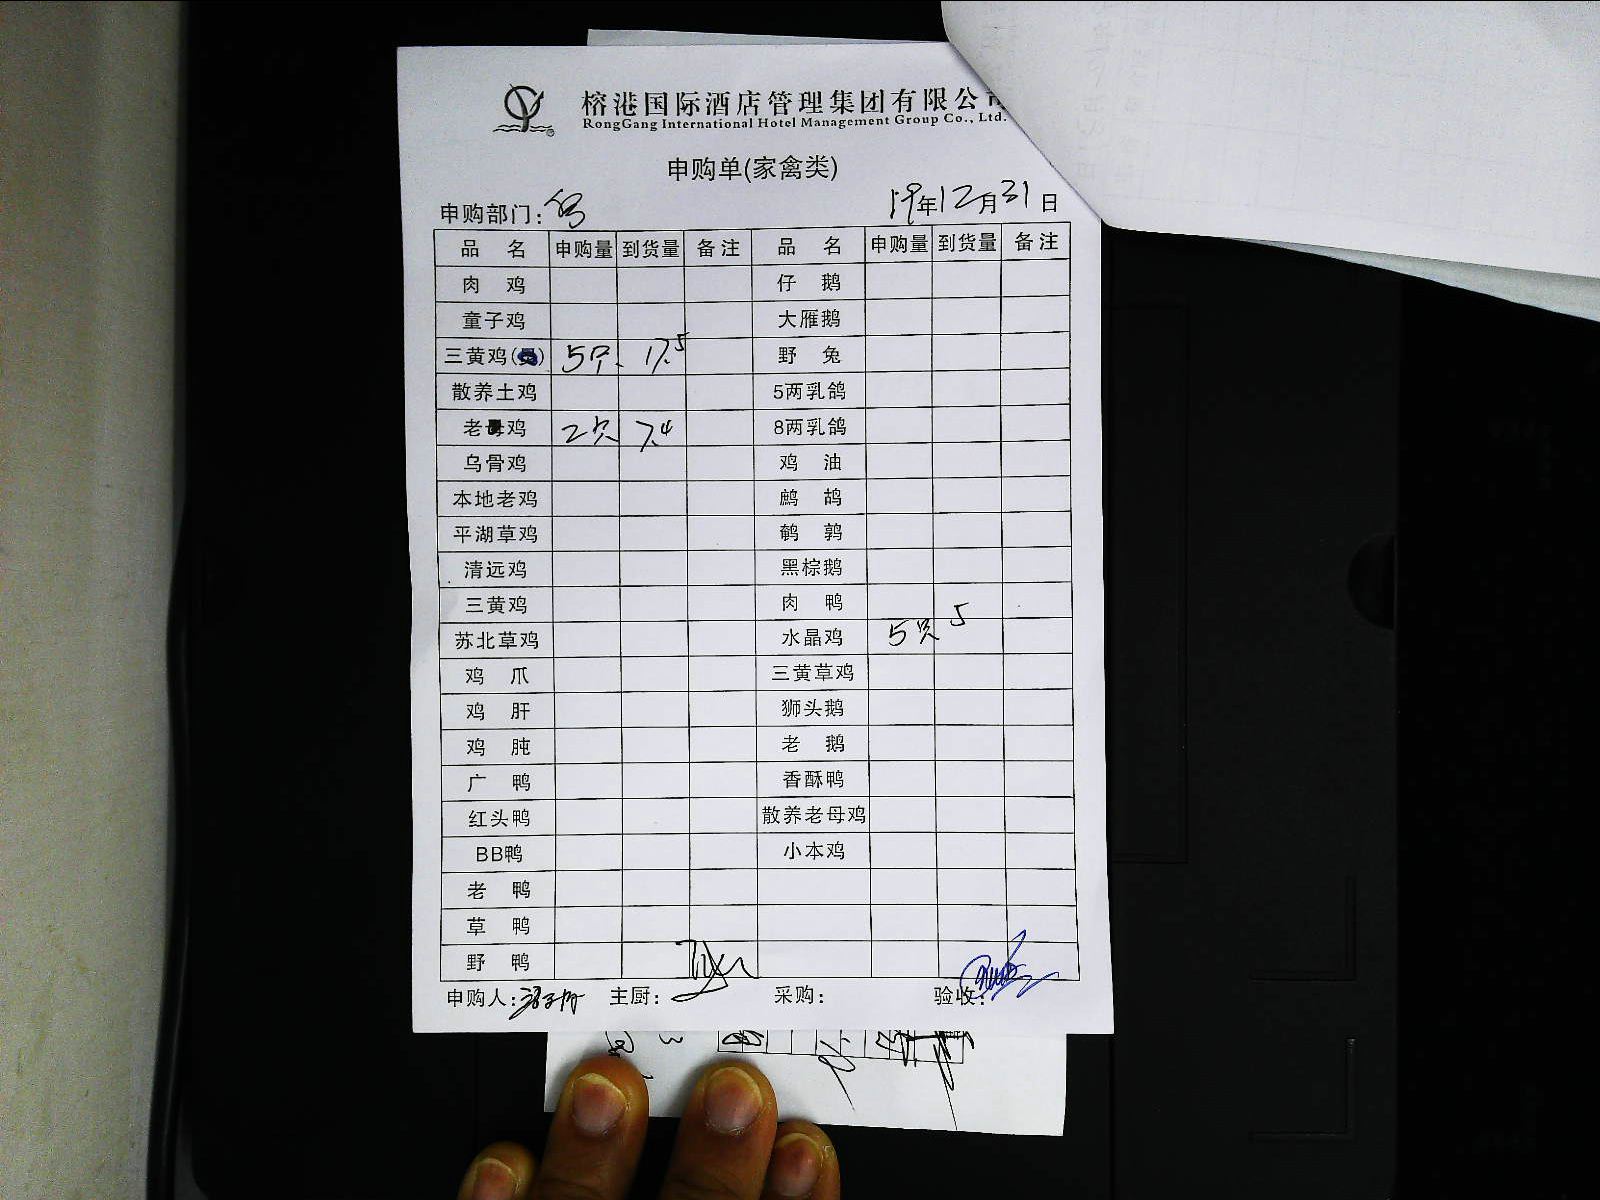 榕港国际酒店管理集团有限公司
RongGang International Hotel Management Group Co., Ltd.
申购单(家禽类)
申购部门： 19年12月31日
品 名 申购量 到货量 备注 品 名 申购量 到货量 备注
肉 鸡 仔 鹅
童子鸡 大雁鹅
三黄鸡( ) 5只 17.5 野 兔
散养土鸡 5两乳鸽
老母鸡 2只 7.4 8两乳鸽
乌骨鸡 鸡 油
本地老鸡 鹧 鸪
平湖草鸡 鹌 鹑
清远鸡 黑棕鹅
三黄鸡 肉 鸭
苏北草鸡 水晶鸡 5只 5
鸡 爪 三黄草鸡
鸡 肝 狮头鹅
鸡 肫 老 鹅
广 鸭 香酥鸭
红头鸭 散养老母鸡
BB鸭 小本鸡
老 鸭
草 鸭
野 鸭
申购人： 主厨： 采购： 验收：